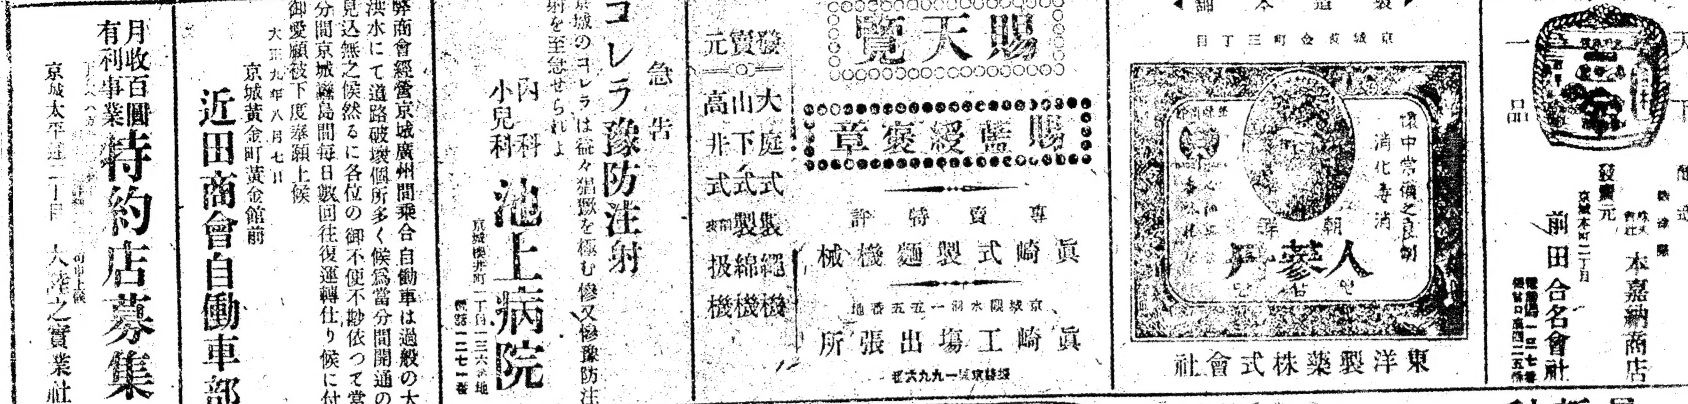 天下一品
發賣元
株式會社
本嘉納商店
京城本町二丁目
前田合名會社
製造本舗
京城黄金町三丁目
懐中常備之良剤
消化毒消
朝鮮
人蔘
東洋製薬株式會社
賜天覽
賜藍綬褒章
專賣特評
眞崎式製麵機械
眞崎工場出張所
發賣元
大庭式製繩機
山下式製綿機
高非式
扱機
急告
コレラ豫防注射
京城のコレラは益々猖獗を極む惨又惨豫防注
射を至急せられよ
内科
小兒科
池上病院
京城櫻井町一丁目一三六番地
弊商會經營京城廣州間乗合自働車は過般の大
洪水にて道路破壞個所多く候爲當分間開通の
見込無之候然るに各位の御不便不尠依つて當
分間京城纛島間毎日數回往復運轉仕り候に付
御愛顧被下度奉願上候
大正九年八月七日
京城黄金町黄金館前
近田商會自働車部
月收百圓
有利事業
特約店募集
京城太平通二丁目
大陸之寶業社